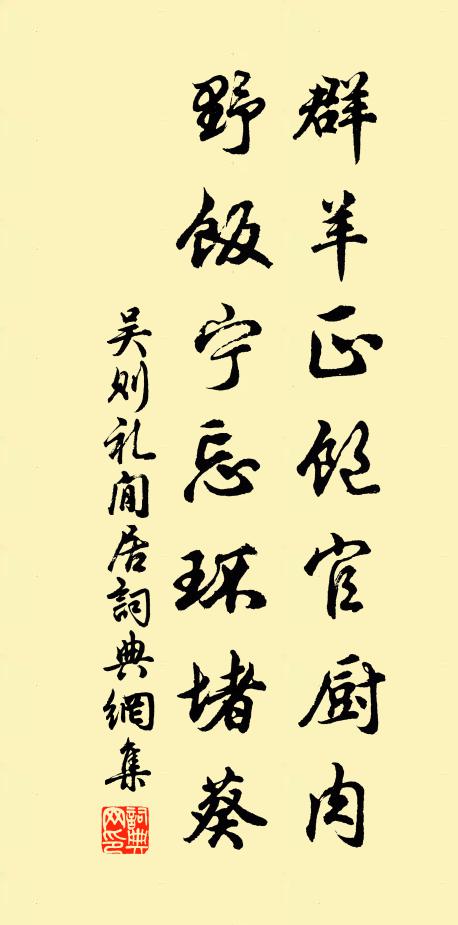 群羊正饱官厨肉
野饭宁忘环堵葵
吴则礼闲居詞典網集
詞典网印